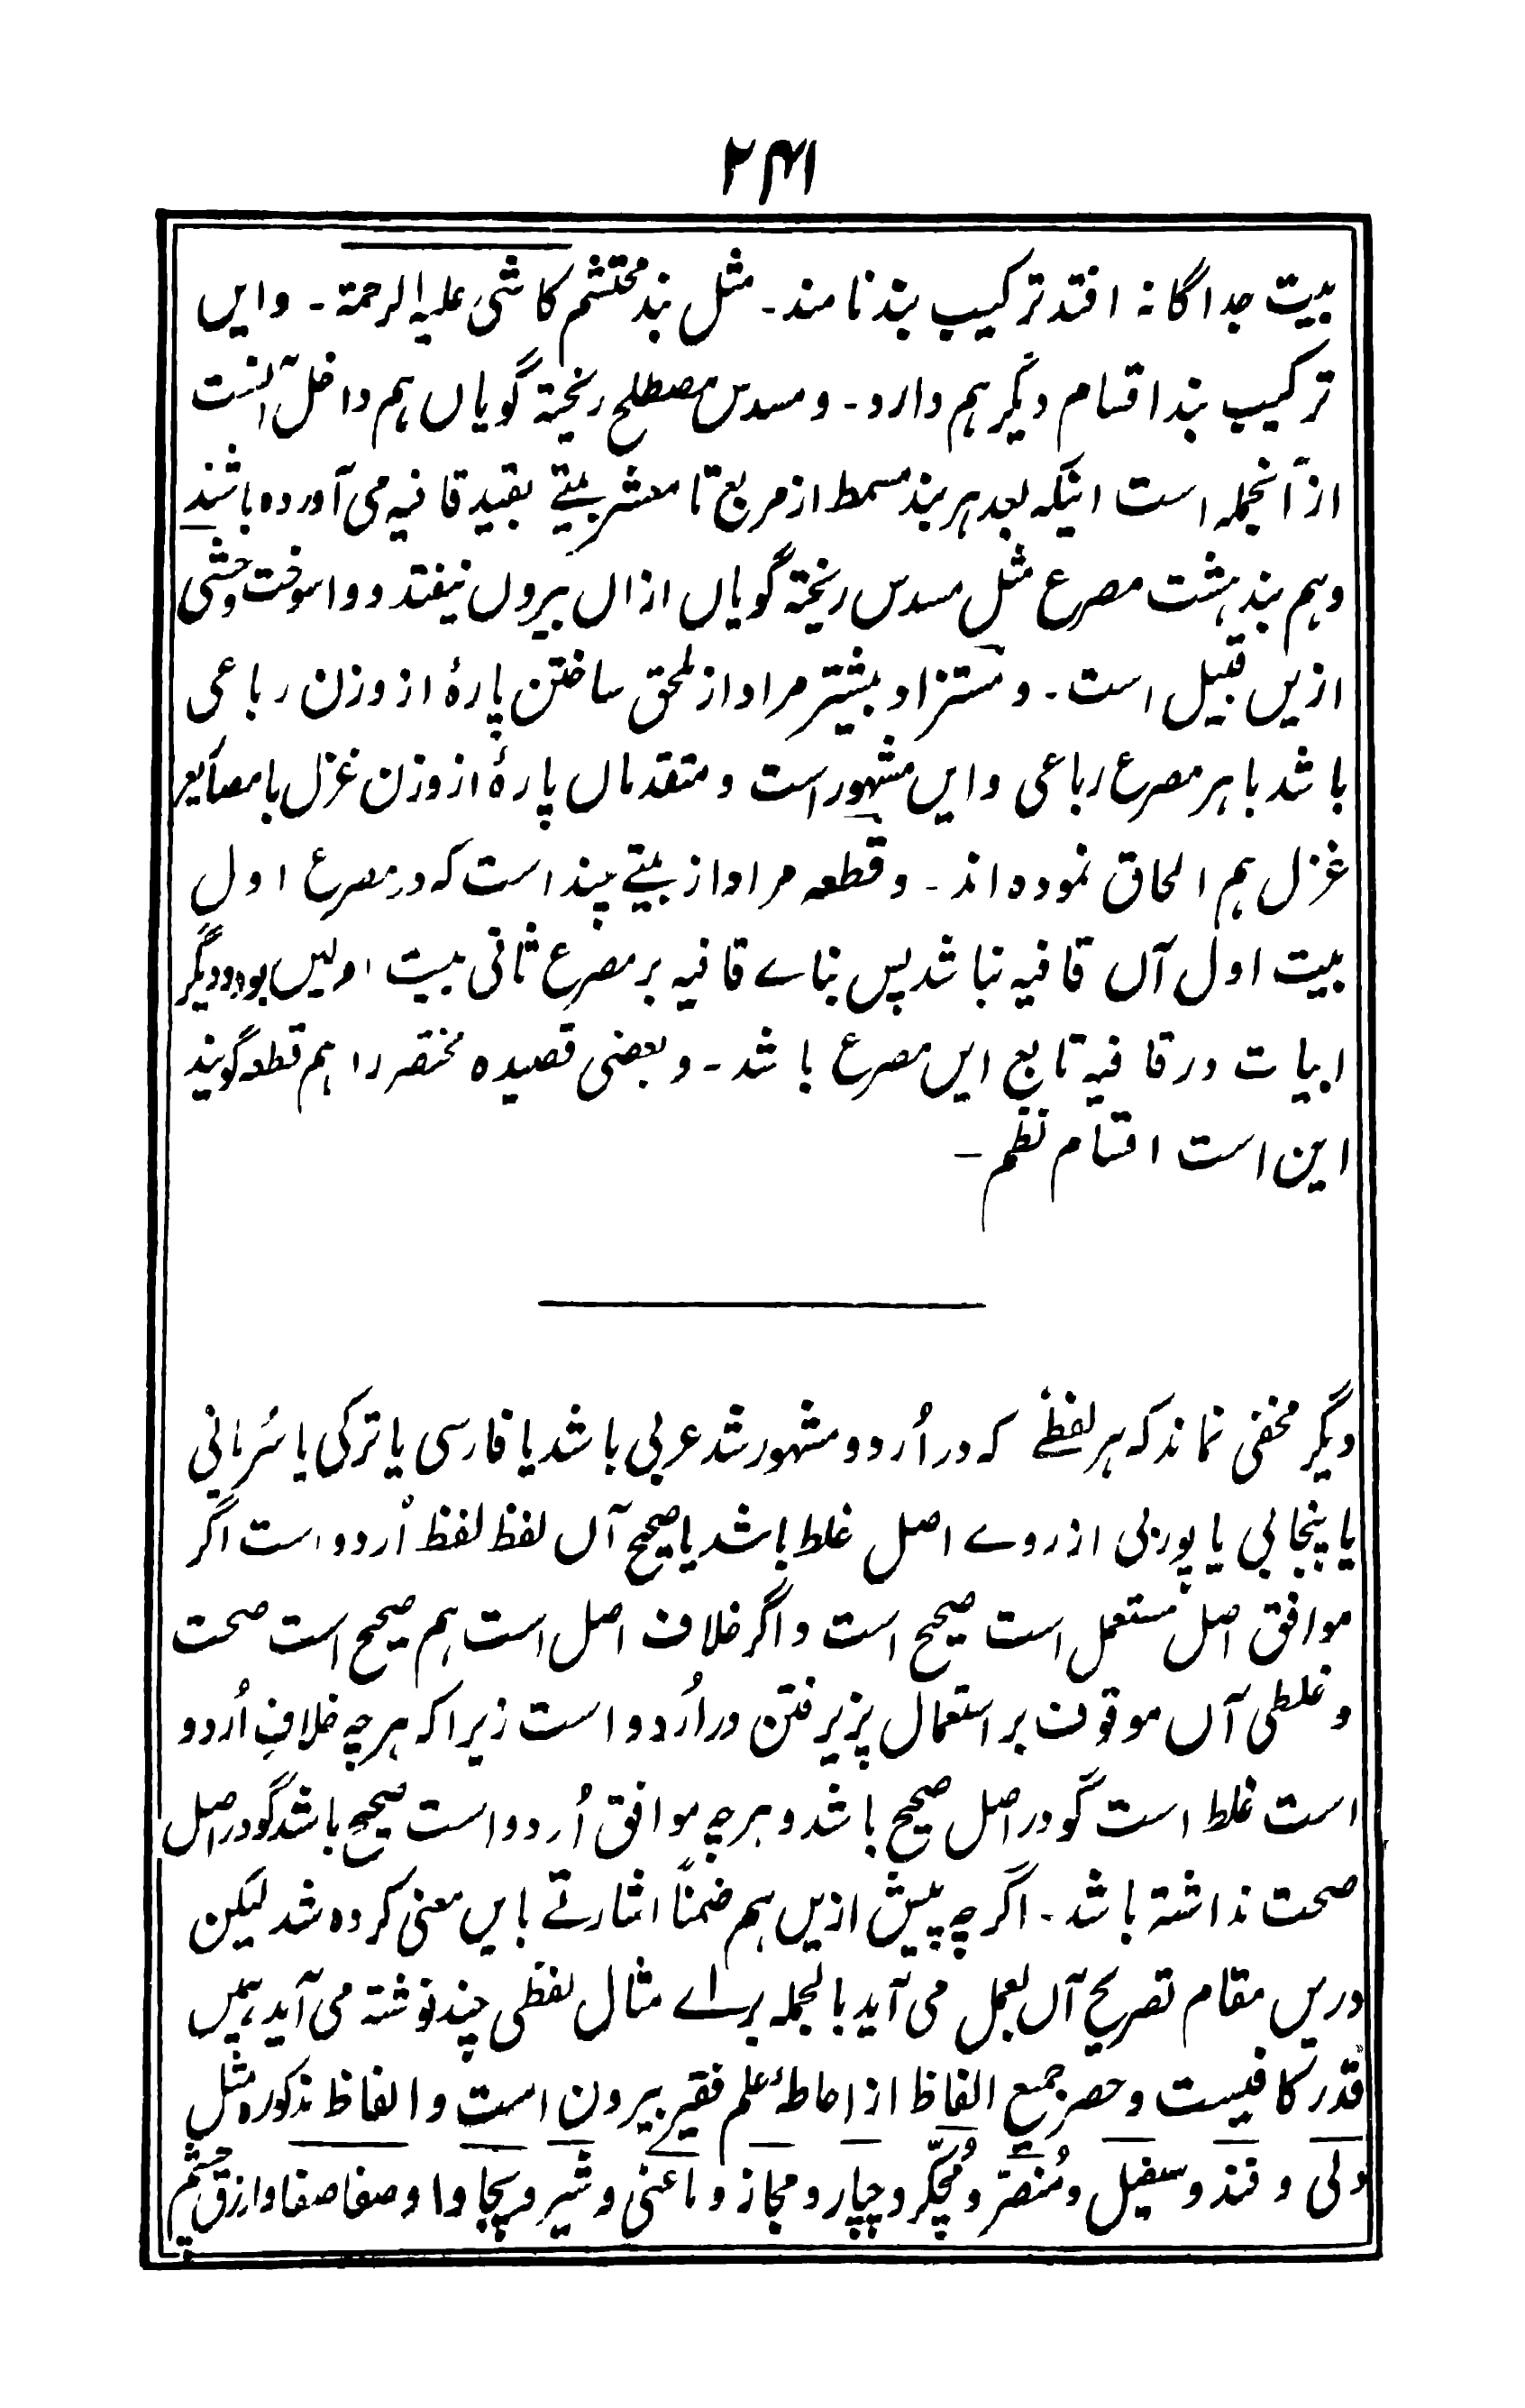 ۲۴۱
بیت جداگانہ افتد ترکیب بند نامند۔ مثل بند محتشم کاشی علیہ الرحمۃ۔ وایں
ترکیب بند اقسام دیگر ہم دارد۔ و مسدس مصطلح ریختہ گویاں ہم داخل آنست
از آنجملہ است اینکہ بعد ہر بند مسمط از مربع تا معشر بیتے بقید قافیہ می آوردہ باشند
وہم بند ہشت مصرع مثل مسدس ریختہ گویاں ازاں بیروں نیفتد و واسوخت وحشی
ازیں قبیل است۔ و مستزاد بیشتر مراد از ملحق ساختن پارۂ از وزن رباعی
باشد باہر مصرع رباعی وایں مشہور است و متقدماں پارۂ از وزن غزل با مصاریع
غزل ہم الحاق نمودہ اند۔ و قطعہ مراد از بیتے چند است کہ در مصرع اول
بیت اول آں قافیہ نباشد پس بناے قافیہ بر مصرع ثانی بیت اولیں بود و دیگر
ابیات در قافیہ تابع ایں مصرع باشد۔ و بعضی قصیدہ مختصر را ہم قطعہ گویند
این است اقسام نظم۔
دیگر مخفی نماند کہ ہر لفظے کہ در اُردو مشہور شد عربی باشد یا فارسی یا ترکی یا سُریانی
یا پنجابی یا پوربی ازروے اصل غلط باشد یا صحیح آں لفظ لفظ اُردو است اگر
موافق اصل مستعمل است صحیح است واگر خلاف اصل است ہم صحیح است صحت
و غلطی آں موقوف بر استعمال پزیرفتن در اُردو است زیرا کہ ہرچہ خلافِ اُردو
است غلط است گو در اصل صحیح باشد و ہرچہ موافق اُردو است صحیح باشد گو در اصل
صحت نداشتہ باشد۔ اگرچہ پیش ازیں ہم ضمناً اشارتے بایں معنی کردہ شد لیکن
دریں مقام تصریح آں بعمل می آید بالجملہ براے مثال لفظی چند نوشتہ می آید ہمیں
قدر کافیست و حصر جمیع الفاظ از احاطۂ علم فقیر بیرون است و الفاظ مذکورہ مثل
ولی و قند و سفیل و مُنصّر و مُچکّر و چپار و مجاز و ماعنی و شیر و پجاوا و صفا صفا وازق چشم